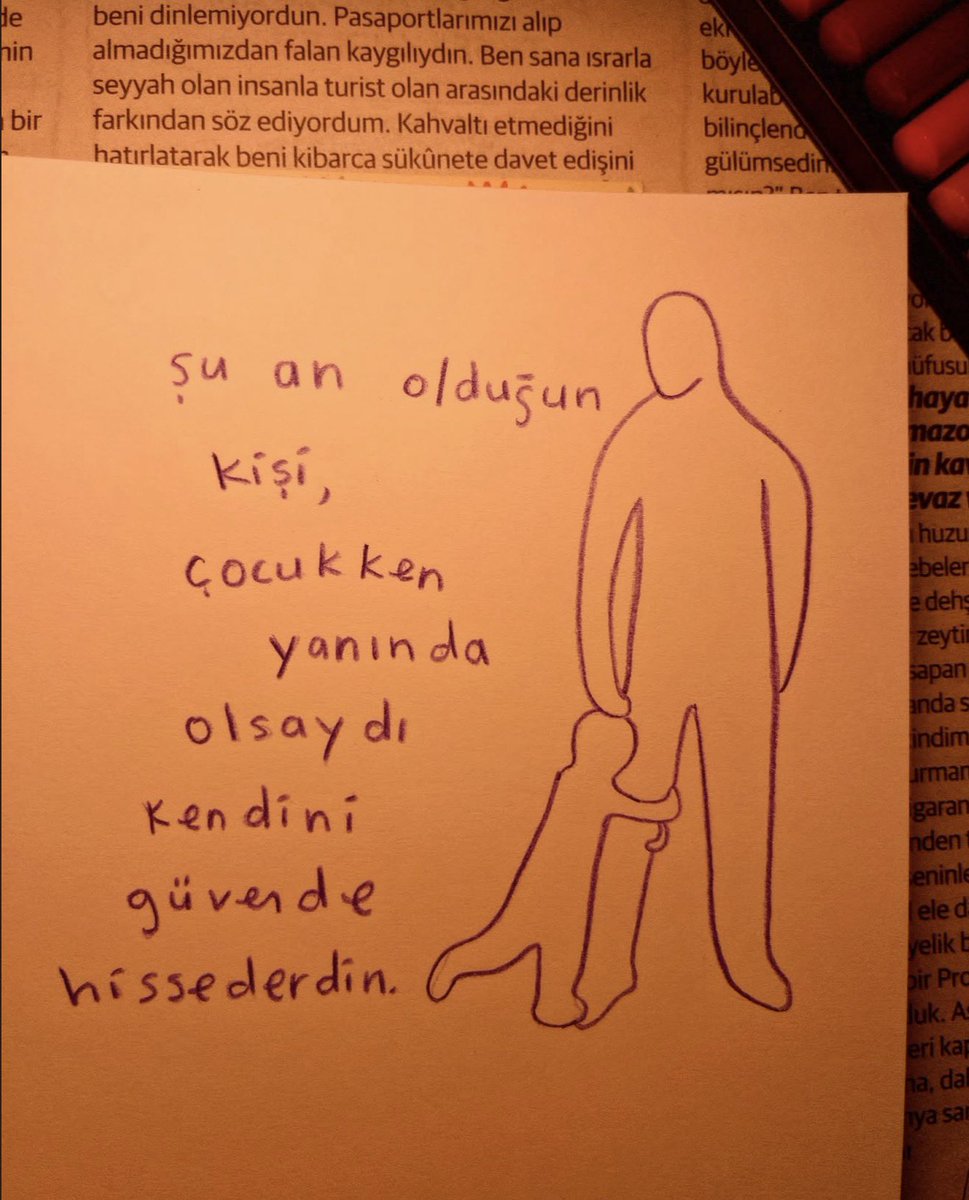 beni dinlemiyordun. Pasaportlarımızı alıp
almadığımızdan falan kaygılıydın. Ben sana ısrarla
seyyah olan insanla turist olan arasındaki derinlik
farkından söz ediyordum. Kahvaltı etmediğini
hatırlatarak beni kibarca sükûnete davet edişini
bir
gülümsedin
şu an olduğun
kişi,
çocukken
yanında
olsaydı
kendini
güvende
hissederdin.
haya
mazo
in ka
evaz
huzu
ebeler
e dehş
zeyti
sapan
anda s
indim
urman
garan
nden
eninle
ele d
yelik b
bir Pro
luk. A
eri kap
na, dal
nya sa